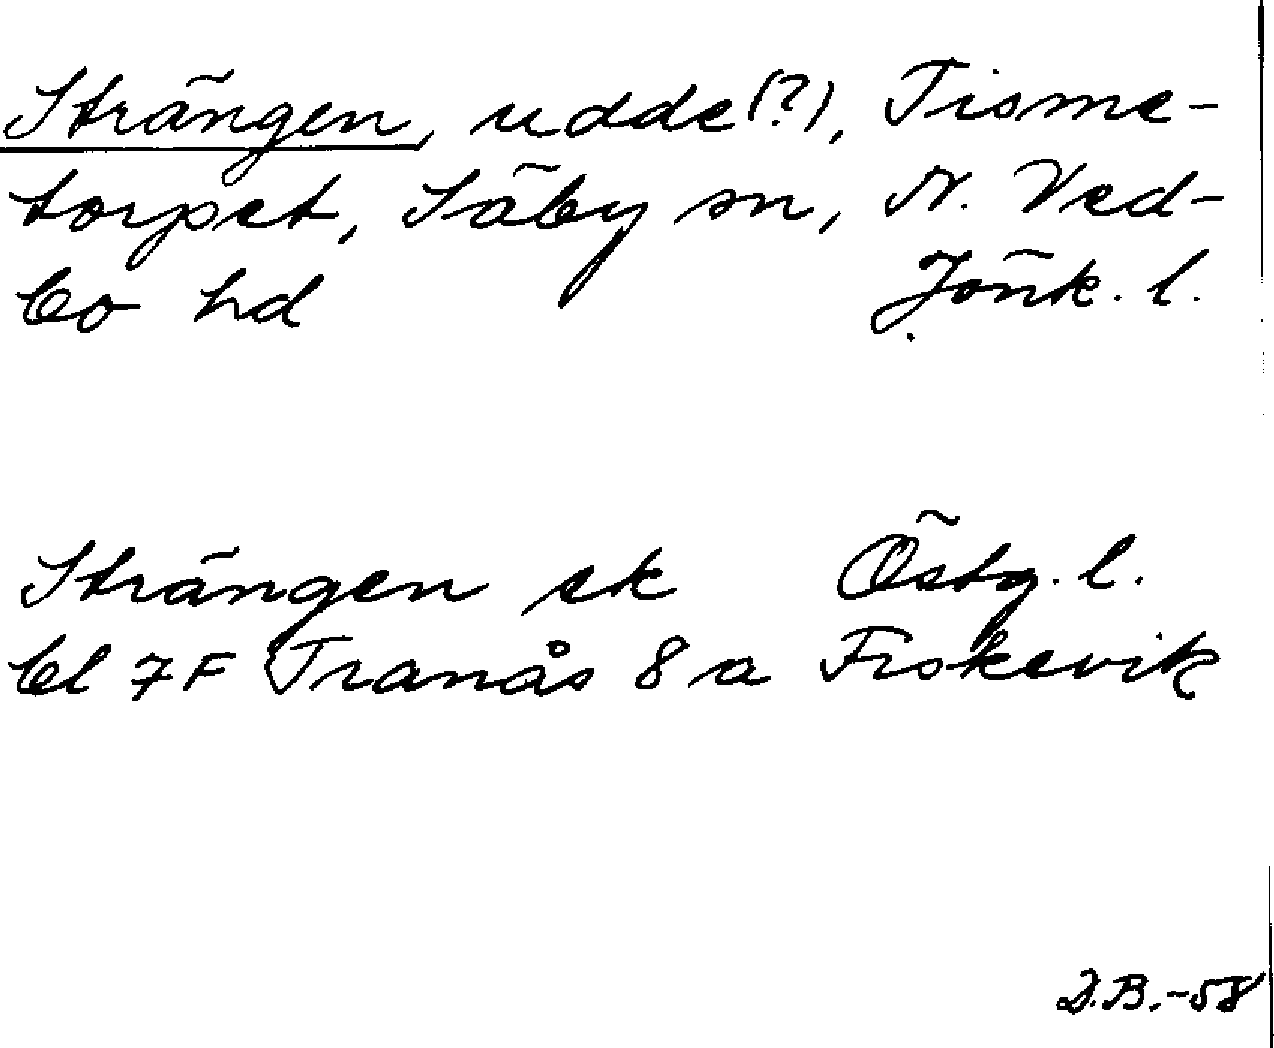 Strängen, udde(?), Tisme-
torpet, Säby sn, N. Ved-
bo hd Jönk. l.
Strängen ek Östg. l.
bl 7F Tranås 8a Fiskevik
D.B.-58